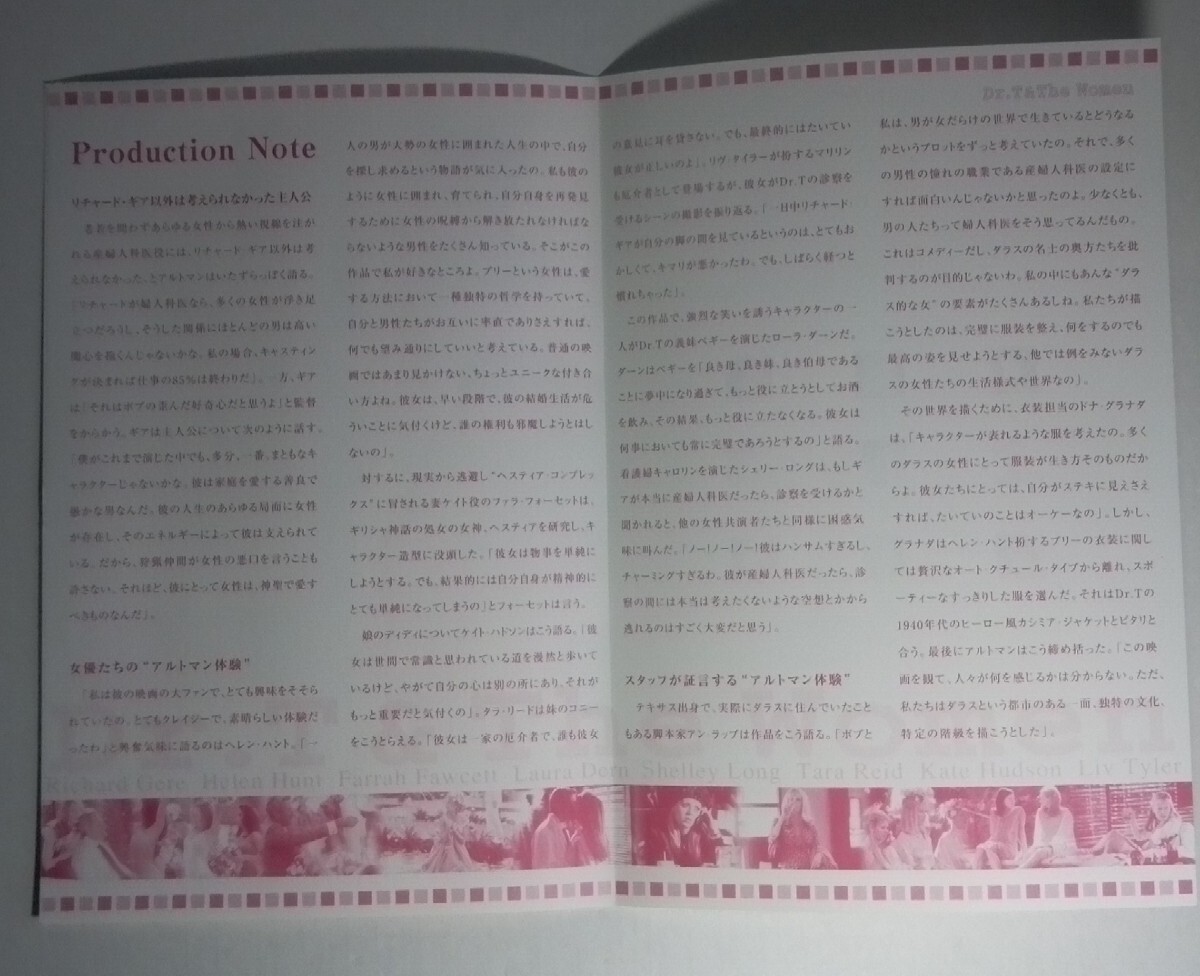 Dr.T&The Women
Production Note
リチャード・ギア以外は考えられなかった主人公
老若を問わずあらゆる女性から熱い視線を注が
れる産婦人科医役には、リチャード・ギア以外は考
えられなかった、とアルトマンはいたずらっぽく語る。
「リチャードが婦人科医なら、多くの女性が浮き足
立つだろうし、そうした関係にほとんどの男は高い
関心を抱くんじゃないかな。私の場合、キャスティン
グが決まれば仕事の85%は終わりだ」。一方、ギア
は「それはボブの歪んだ好奇心だと思うよ」と監督
をからかう。ギアは主人公について次のように話す。
「僕がこれまで演じた中でも、多分、一番、まともなキ
ャラクターじゃないかな。彼は家庭を愛する善良で
愚かな男なんだ。彼の人生のあらゆる局面に女性
が存在し、そのエネルギーによって彼は支えられて
いる。だから、狩猟仲間が女性の悪口を言うことも
許さない。それほど、彼にとって女性は、神聖で愛す
べきものなんだ」。
女優たちの“アルトマン体験”
「私は彼の映画の大ファンで、とても興味をそそら
れていたの。とてもクレイジーで、素晴らしい体験だ
ったわ」と興奮気味に語るのはヘレン・ハント。「一
人の男が大勢の女性に囲まれた人生の中で、自分
を探し求めるという物語が気に入ったの。私も彼の
ように女性に囲まれ、育てられ、自分自身を再発見
するために女性の呪縛から解き放たれなければな
らないような男性をたくさん知っている。そこがこの
作品で私が好きなところよ。ブリーという女性は、愛
する方法において一種独特の哲学を持っていて、
自分と男性たちがお互いに率直でありさえすれば、
何でも望み通りにしていいと考えている。普通の映
画ではあまり見かけない、ちょっとユニークな付き合
い方よね。彼女は、早い段階で、彼の結婚生活が危
ういことに気付くけど、誰の権利も邪魔しようとはし
ないの」。
対するに、現実から逃避し“ヘスティア・コンプレッ
クス”に冒される妻ケイト役のファラ・フォーセットは、
ギリシャ神話の処女の女神、ヘスティアを研究し、キ
ャラクター造型に没頭した。「彼女は物事を単純に
しようとする。でも、結果的には自分自身が精神的に
とても単純になってしまうの」とフォーセットは言う。
娘のディディについてケイト・ハドソンはこう語る。「彼
女は世間で常識と思われている道を漫然と歩いて
いるけど、やがて自分の心は別の所にあり、それが
もっと重要だと気付くの」。タラ・リードは妹のコニー
をこうとらえる。「彼女は一家の厄介者で、誰も彼女
の意見に耳を貸さない。でも、最終的にはたいてい
彼女が正しいのよ」。リヴ・タイラーが扮するマリリン
も厄介者として登場するが、彼女がDr.Tの診察を
受けるシーンの撮影を振り返る。「一日中リチャード・
ギアが自分の脚の間を見ているというのは、とてもお
かしくて、キマリが悪かったわ。でも、しばらく経つと
慣れちゃった」。
この作品で、強烈な笑いを誘うキャラクターの一
人がDr.Tの義妹ペギーを演じたローラ・ダーンだ。
ダーンはペギーを「良き母、良き妹、良き伯母である
ことに夢中になり過ぎて、もっと役に立とうとしてお酒
を飲み、その結果、もっと役に立たなくなる。彼女は
何事においても常に完璧であろうとするの」と語る。
看護婦キャロリンを演じたシェリー・ロングは、もしギ
アが本当に産婦人科医だったら、診察を受けるかと
聞かれると、他の女性共演者たちと同様に困惑気
味に叫んだ。「ノー！ノー！ノー！彼はハンサムすぎるし、
チャーミングすぎるわ。彼が産婦人科医だったら、診
察の間には本当は考えたくないような空想とかから
逃れるのはすごく大変だと思う」。
スタッフが証言する“アルトマン体験”
テキサス出身で、実際にダラスに住んでいたこと
もある脚本家アン・ラップは作品をこう語る。「ボブと
私は、男が女だらけの世界で生きているとどうなる
かというプロットをずっと考えていたの。それで、多く
の男性の憧れの職業である産婦人科医の設定に
すれば面白いんじゃないかと思ったのよ。少なくとも、
男の人たちって婦人科医をそう思ってるんだもの。
これはコメディーだし、ダラスの名士の奥方たちを批
判するのが目的じゃないわ。私の中にもあんな“ダラ
ス的な女”の要素がたくさんあるしね。私たちが描
こうとしたのは、完璧に服装を整え、何をするのでも
最高の姿を見せようとする、他では例をみないダラ
スの女性たちの生活様式や世界なの」。
その世界を描くために、衣装担当のドナ・グラナダ
は、「キャラクターが表れるような服を考えたの。多く
のダラスの女性にとって服装が生き方そのものだか
らよ。彼女たちにとっては、自分がステキに見えさえ
すれば、たいていのことはオーケーなの」。しかし、
グラナダはヘレン・ハント扮するブリーの衣装に関し
ては贅沢なオート・クチュール・タイプから離れ、スポ
ーティーなすっきりした服を選んだ。それはDr.Tの
1940年代のヒーロー風カシミア・ジャケットとピタリと
合う。最後にアルトマンはこう締め括った。「この映
画を観て、人々が何を感じるかは分からない。ただ、
私たちはダラスという都市のある一面、独特の文化、
特定の階級を描こうとした」。
Richard Gere Helen Hunt Farrah Fawcett Laura Dern Shelley Long Tara Reid Kate Hudson Liv Tyler